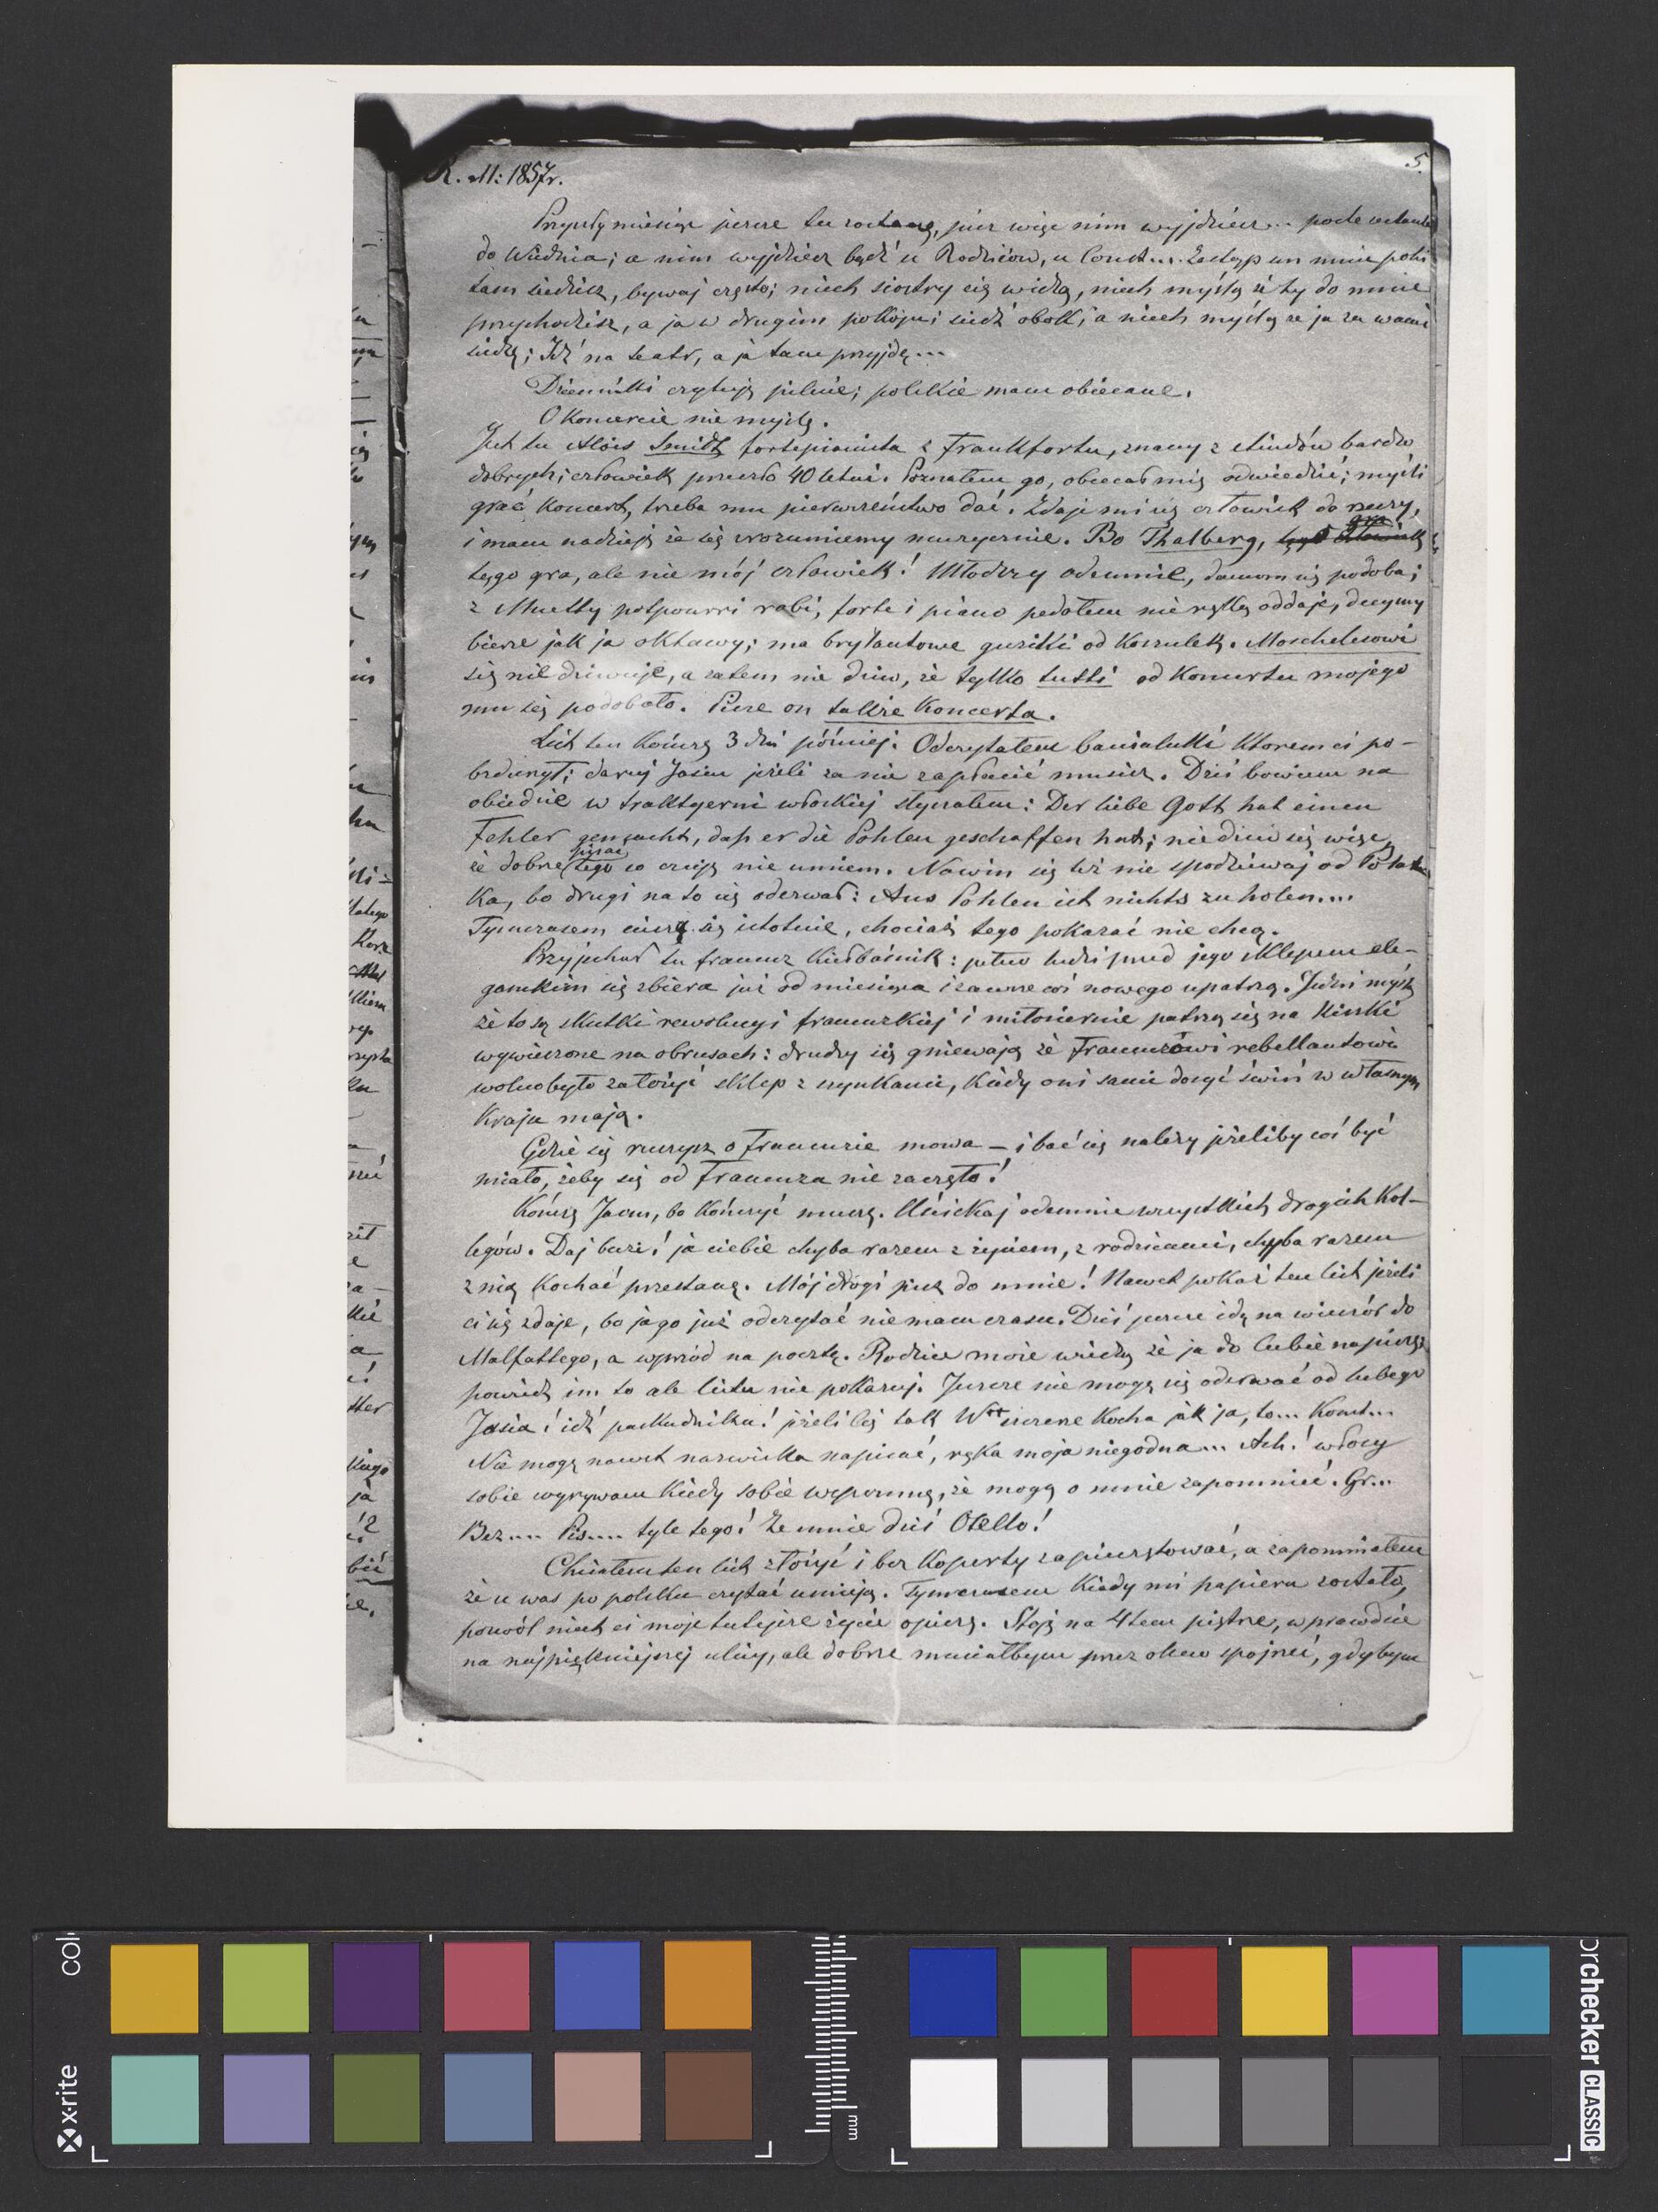 R. M: 1857r.
5.
Przyszły miesiąc jeszcze tu zostanę, pisz więc nim wyjdziesz... poste restante
do Wiednia; a nim wyjdziesz bądź u Rodziców, u Const... Zastąp im mnie póki
tam siedzisz, bywaj często; niech siostry cię widzą, niech myślą że ty do mnie
przychodzisz, a ja w drugim pokoju; siedź obok, a niech myślą że ja za wami
siedzę; Idź na teatr, a ja tam przyjdę...
Dzienniki czytuję pilnie; polskie mam obiecane.
O Koncercie nie myślę.
Jest tu Alois Smidt fortepianista z Frankfortu, znany z etiudów bardzo
dobrych; człowiek przeszło 40 letni. Poznałem go, obiecał mię odwiedzić; myśli
grać koncert, trzeba mu pierwszeństwo dać. Zdaje mi się człowiek do rzeczy,
i mam nadzieję że się zrozumiemy muzycznie. Bo Thalberg,
gra
tęgo gra, ale nie mój człowiek! Młodszy odemnie, damom się podoba;
z Muetty potpourri robi, forte i piano pedałem nie ręką oddaje, decymy
bierze jak ja oktawy; ma brylantowe guziki od Koszulek. Moschelesowi
się nie dziwuje, a zatem nie dziw, że tylko tutti od Koncertu mojego
mu się podobało. Pisze on także Koncerta.
List ten kończę 3 dni później. Odczytałem banialuki Którem ci po-
bzdurzył; daruj Jasiu jeżeli za nie zapłacić musisz. Dziś bowiem na
obiedzie w traktyerni włoskiej słyszałem: Der liebe Gott hat einen
Fehler gemacht, daß er die Pohlen geschaffen hat; nie dziw się więc,
pisać
że dobrze tego co czuję nie umiem. Nowin się też nie spodziewaj od Pola-
ka, bo drugi na to się odezwał: Aus Pohlen ist nichts zu holen....
Tymczasem cieszę się istotnie, chociaż tego pokazać nie chcą.
Przyjechał tu francuz Kiełbaśnik: pełno ludzi przed jego sklepem ele-
ganckim się zbiera już od miesiąca i zawsze coś nowego upatrzą. Jedni myślą
że to są skutki rewolucyi francuzkiej i miłosiernie patrzą się na Kiszki
wywieszone na obrusach: drudzy się gniewają że Francuzowi rebellantowi
wolno było założyć sklep z szynkami, kiedy oni sami dosyć świń w własnym
Kraju mają.
Gdzie się ruszysz o Francuzie mowa — i bać się należy jeżeliby coś być
miało, żeby się od Francuza nie zaczęło!
Kończę Jasiu, bo kończyć muszę. Uściskaj odemnie wszystkich drogich Kol-
legów. Daj buzi! ja ciebie chyba razem z życiem, z rodzicami, chyba razem
z nią kochać przestanę. Mój drogi pisz do mnie! Nawet pokaż ten list jeżeli
ci się zdaje, bo ja go już odczytać nie mam czasu. Dziś jeszcze idę na wieczór do
Malfattego, a wprzód na pocztę. Rodzice może wiedzą że ja do Ciebie napiszę,
powiedz im to ale listu nie pokazuj. Jeszcze nie mogę się oderwać od lubego
Jasia! idź paskudniku! jeżeli Cię tak W** szczerze kocha jak ja, to... Const...
Nie mogę nawet nazwiska napisać, ręka moja niegodna... Ach! włosy
sobie wyrywam kiedy sobie wspomnę, że mogą o mnie zapomnieć. Gr...
Bez.... Pis.... tyle tego! Ze mnie dziś Otello!
Chciałem ten list złożyć i bez Koperty zapieczętować, a zapomniałem
że u was po polsku czytać umieją. Tymczasem kiedy mi papieru zostało,
pozwól niech ci moje tutejsze życie opiszę. Stoję na 4tem piętrze, wprawdzie
na najpiękniejszej ulicy, ale dobrze musiałbym przez okno spojrzeć, gdybym
x-rite
colorchecker CLASSIC
mm